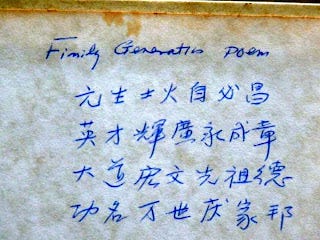 Fimily Generatis Poem
元生士火自必昌
英才輝廣永成章
大道宏文光祖德
功名万世庆家邦